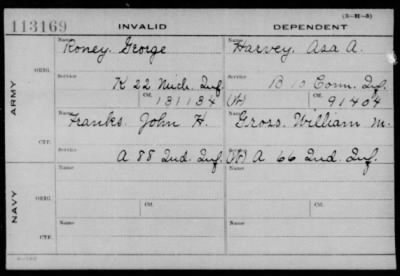 113169 INVALID DEPENDENT
(3-M-5)
Name Name
Roney, George Harvey, Asa A.
ORIG.
Service Service
K 22 Mich. Inf. B 10 Conn. Inf.
Ctf. 131134 (W) Ctf. 91404
ARMY
Name Name
Franks, John H. Gross, William M.
CTF.
Service Service
A 88 Ind. Inf. (W) A 66 Ind. Inf.
Name Name
ORIG. Ctf. Ctf.
NAVY
Name Name
CTF.